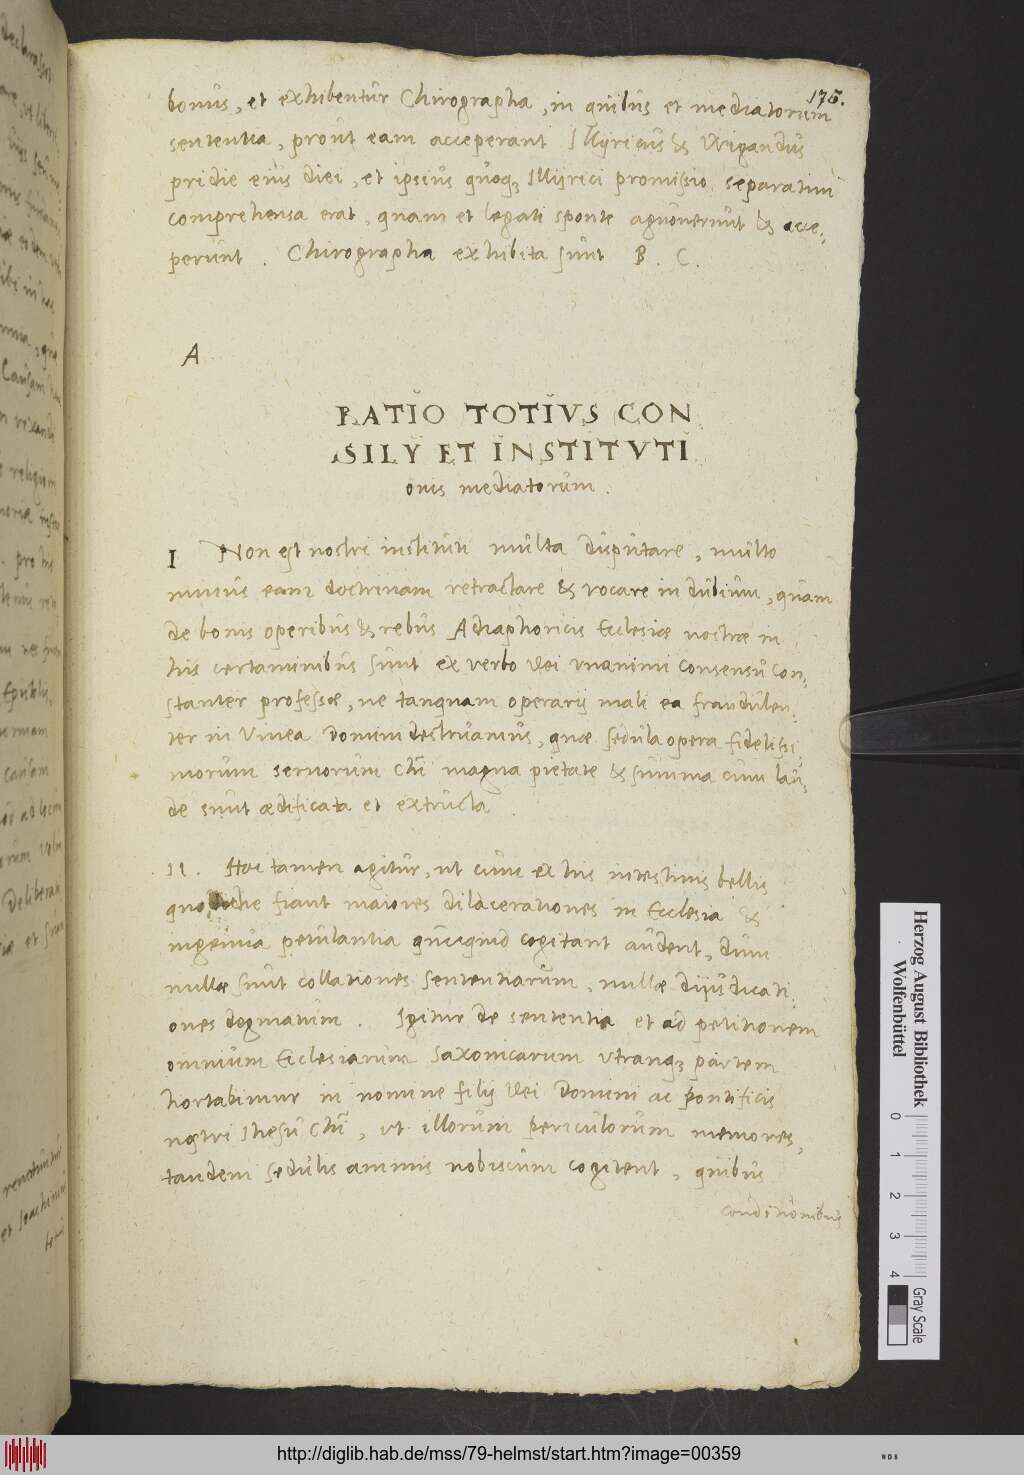 175.
bonus, et exhibentur Chirographa, in quibus et mediatorum
sententia, prout eam acceperant Illyricus & Wigandus
pridie eius diei, et ipsius quoq3 Illyrici promissio separatim
comprehensa erat, quam et legati sponte agnouerunt & acce-
perunt. Chirographa exhibita sunt B. C.
A
RATIO TOTIVS CON
SILY ET INSTITVTI
onis mediatorum.
I Non est nostri instituti multa disputare, multo
minus eam doctrinam retractare & vocare in dubium, quam
de bonis operibus & rebus Adiaphoricis Ecclesiæ nostræ in
his certaminibus sunt ex verbo Dei vnanimi consensu con-
stanter professæ, ne tanquam operarij mali ea fraudulen-
ter in Vinea Domini destruamus, quæ sedula opera fidelissi
morum seruorum Chi magna pietate & summa cum lau-
de sunt ædificata et extructa.
II. Hoc tamen agitur, ut cum ex his intestinis bellis
quotidie fiant maiores dilacerationes in Ecclesia &
ingenia petulantia quicquid cogitant audent, dum
nullæ sunt collationes sententiarum, nullæ dijudicati-
ones dogmatum. Igitur de sententia et ad petitionem
omnium Ecclesiarum Saxonicarum vtranq3 partem
hortabimur in nomine filij Dei Domini ac pontificis
nostri Ihesu Chi, vt illorum periculorum memores,
tandem sedulis animis nobiscum cogitent, quibus
conditionibus
Herzog August Bibliothek
Wolfenbüttel
0 1 2 3 4
Gray Scale
http://diglib.hab.de/mss/79-helmst/start.htm?image=00359